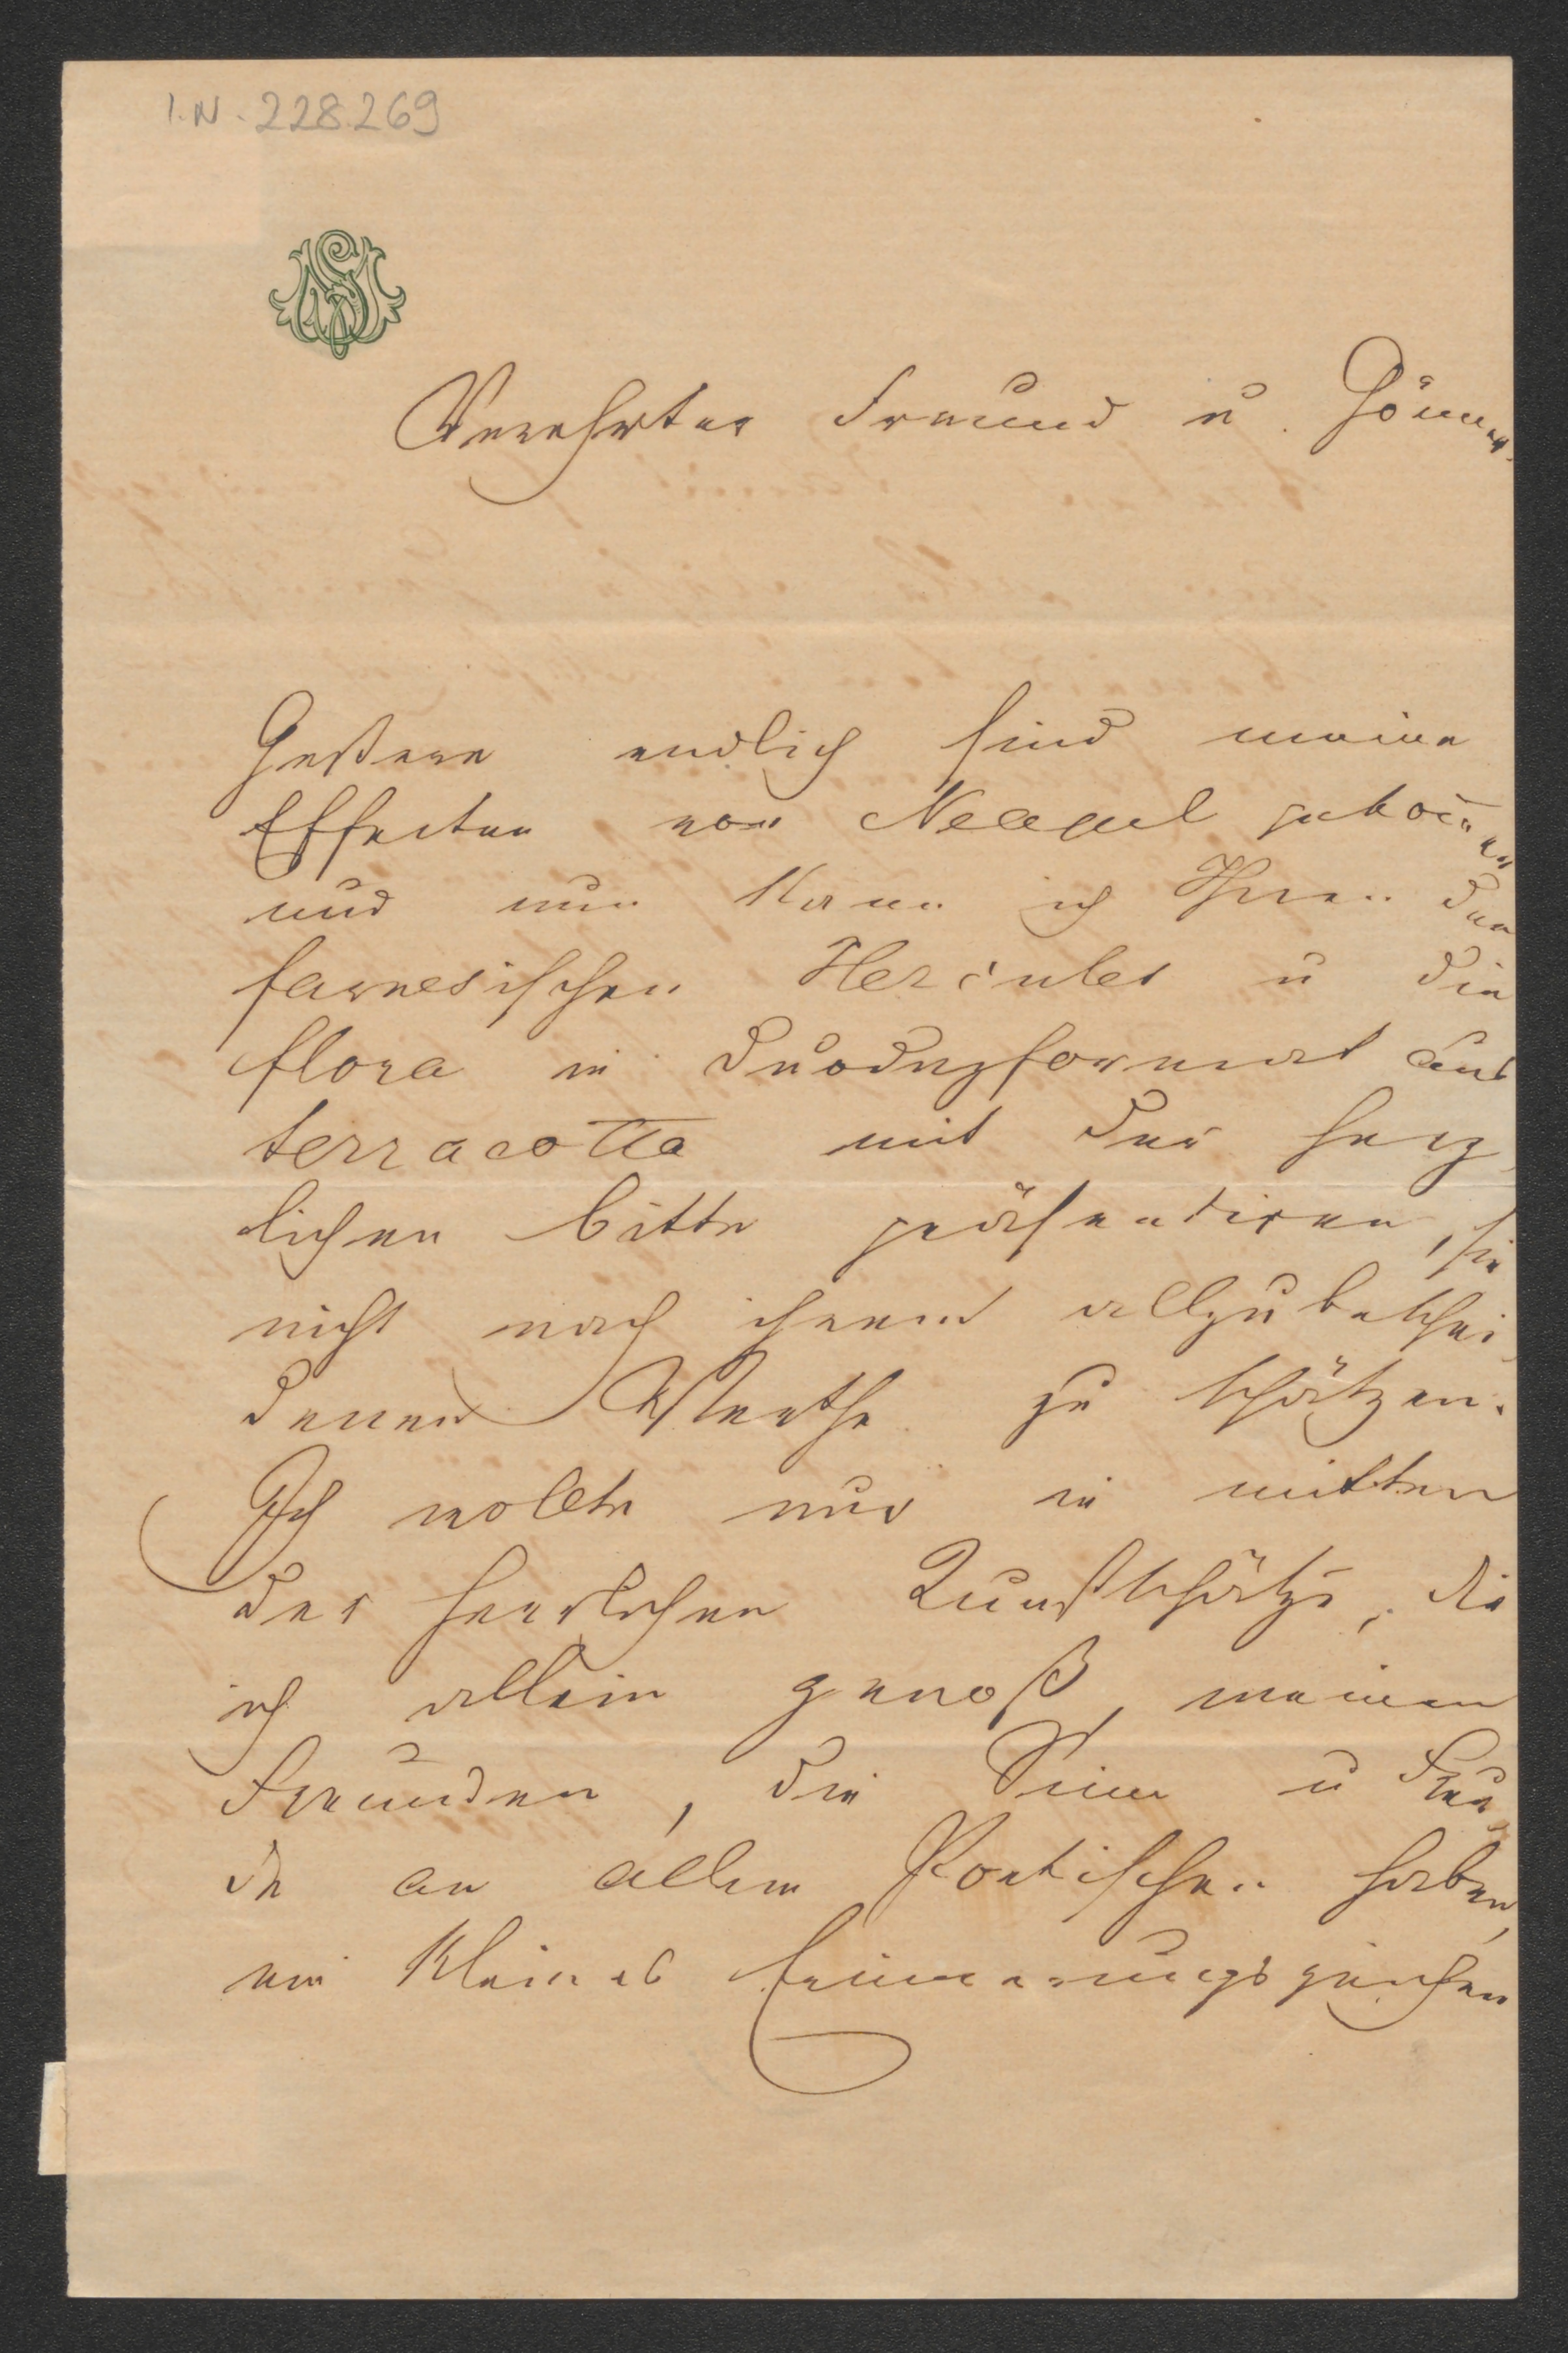 I.N. 228.269
Verehrter Freund u. Gönner.
Gestern endlich sind meine
Effecten von Neapel gekom̄en
und nun kann ich Ihnen den
farnesischen Hercules u die
flora in Duodezformat aus
terracotta mit der herz-
lichen bitte präsentiren, sie
nicht nach ihrem allzubeschei-
denen Werthe zu schätzen.
Ich wollte nur in mitten
der herrlichen Kunstschätze, die
ich allein genoß, meinen
Freunden, die Sinn u Freu-
de an allem Poetischen haben,
ein kleines Erinnerungszeichen